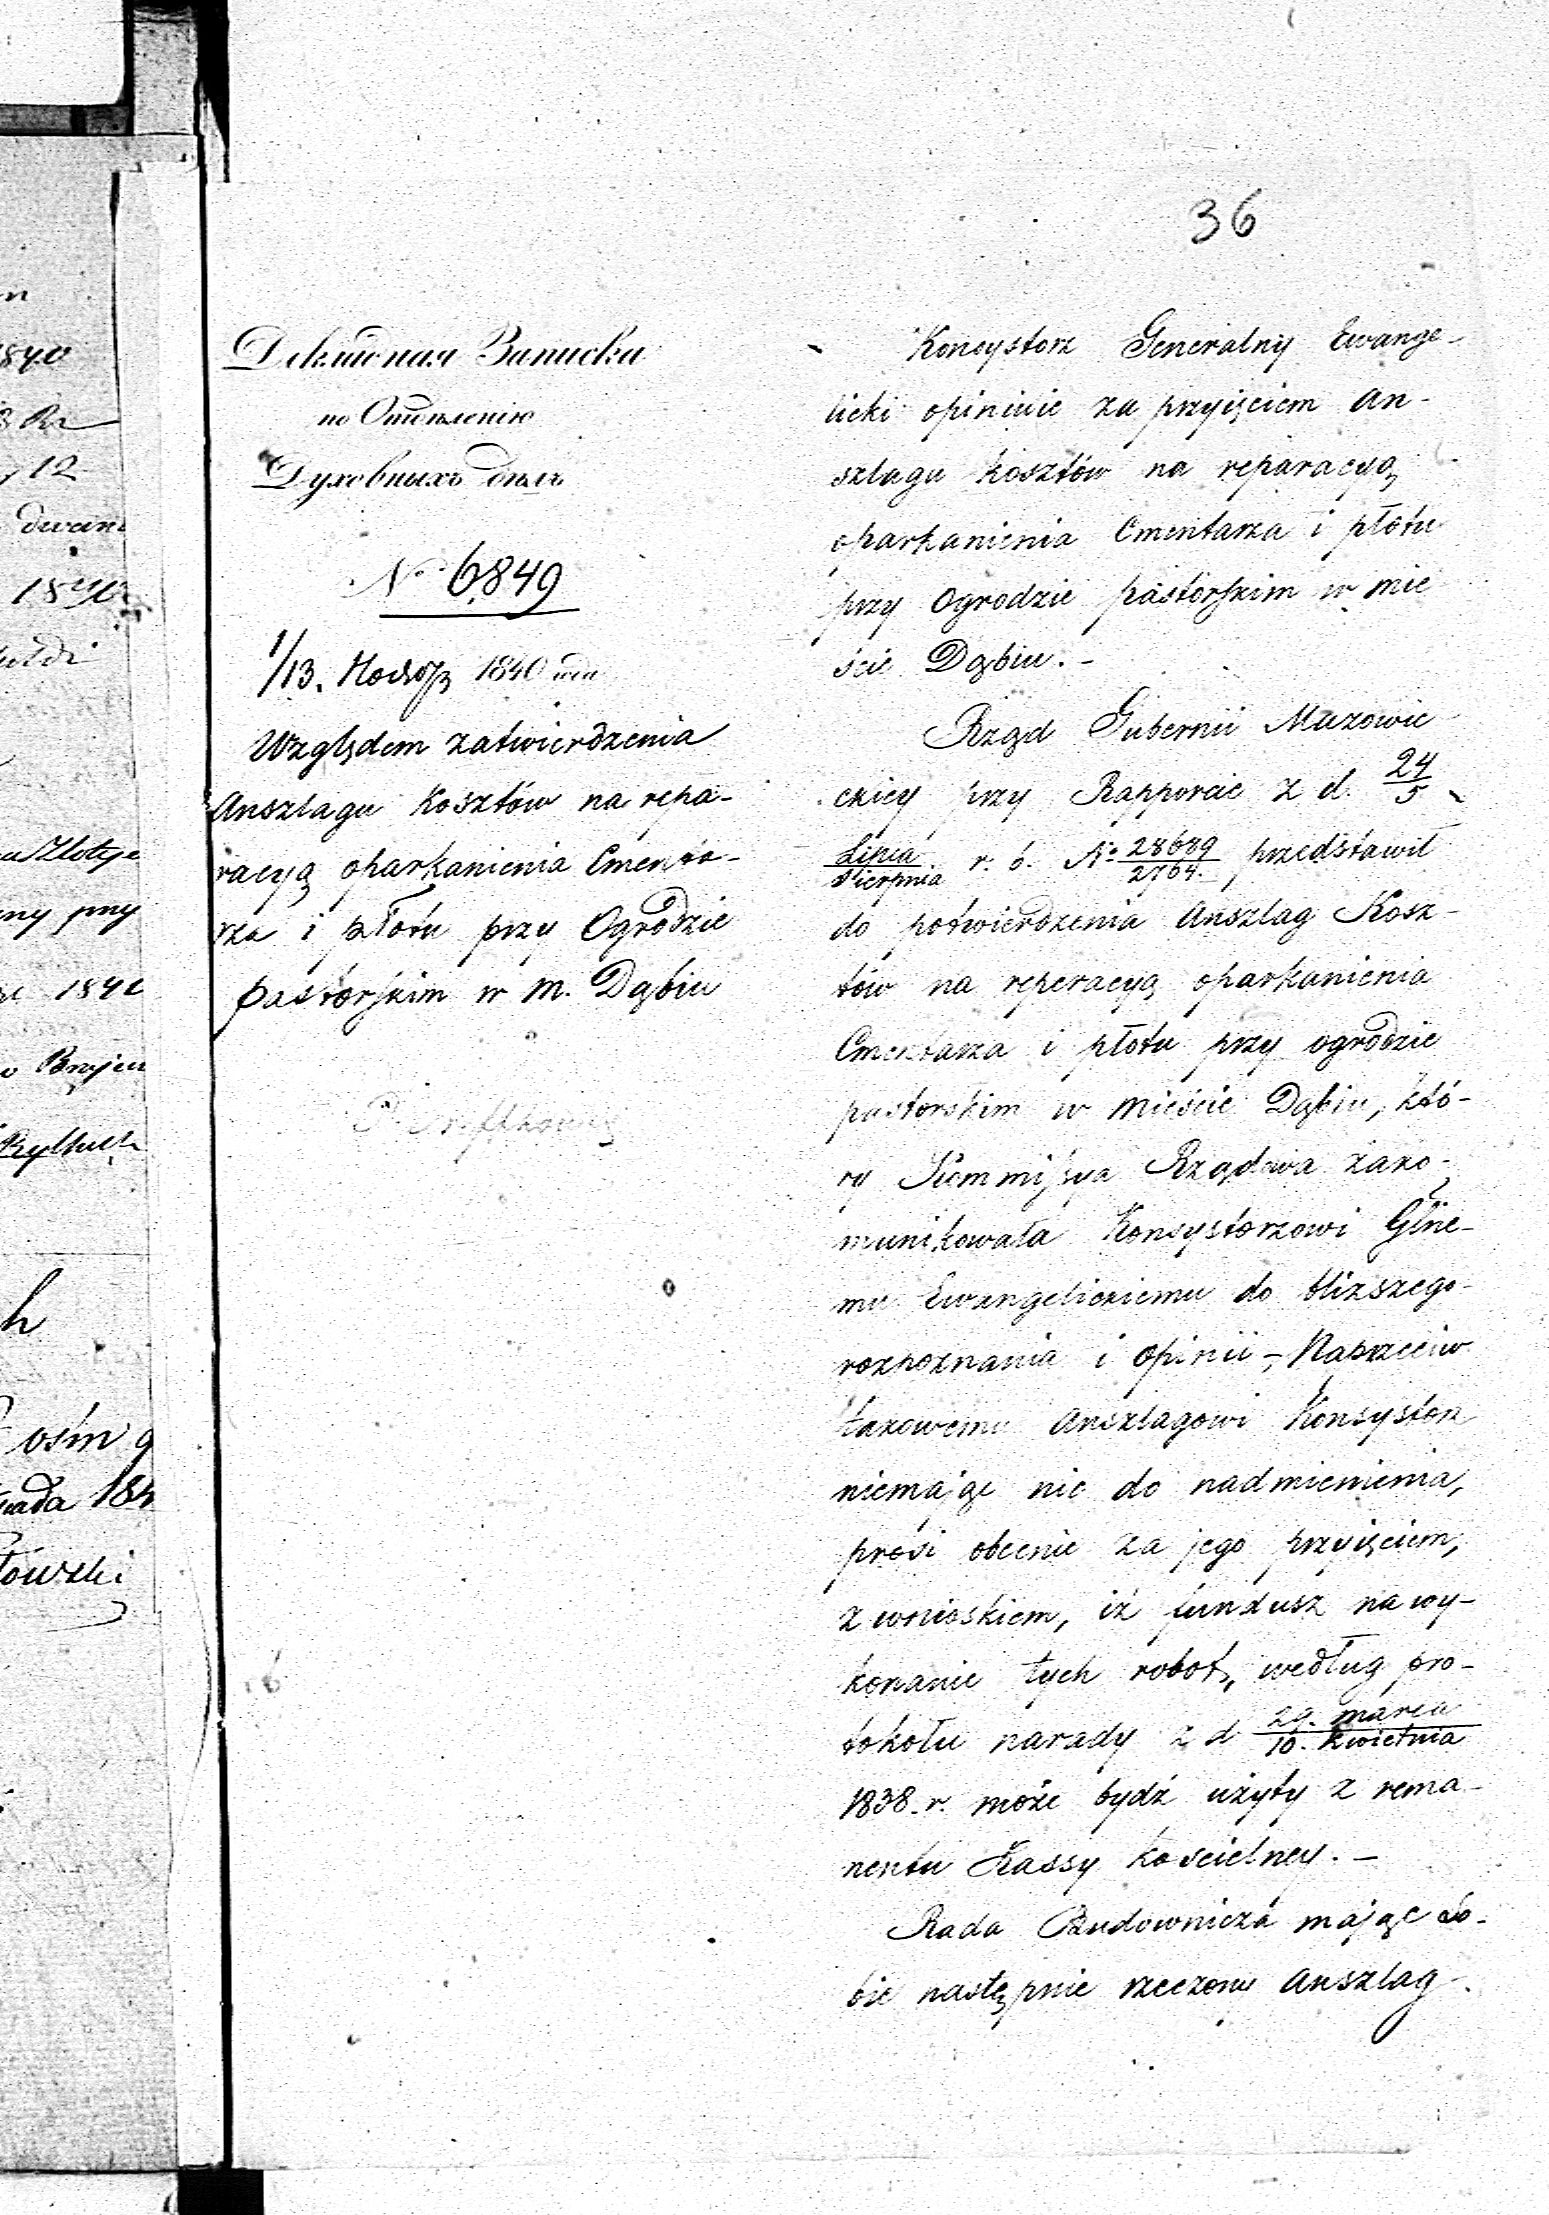 36
Докладная Записка
по Отдѣленію
Духовныхъ дѣлъ
No 6849
1/13. 1840
Względem zatwierdzenia
Anszlagu kosztów na repa-
racyą oparkanienia Cmenta-
rza i płotu przy Ogrodzie
pastorskim w m. Dąbiu
Konsystorz Generalny Ewange-
licki opiniuie za przyięciem An-
szlagu kosztów na reparacyą
oparkanienia Cmentarza i płotu
przy Ogrodzie pastorskim w mie
ście Dąbiu. -
Rząd Gubernii Mazowie
ckiey przy Rapporcie z d. 24/5
Lipca/Sierpnia r. b. No 28689/2764 przedstawił
do potwierdzenia Anszlag Kosz-
tów na reperacyą oparkanienia
Cmentarza i płotu przy ogrodzie
pastorskim w mieście Dąbiu, któ-
ry Kommissya Rządowa zako-
munikowała Konsystorzowi Głne-
mu Ewangelickiemu do bliższego
rozpoznania i opinii -, Naprzeciw
takowemu Anszlagowi Konsystorz
niemaiąc nic do nadmienienia,
prosi obecnie za jego przyięciem,
z wnioskiem, iż fundusz na wy-
konanie tych robot, według pro-
tokołu narady z d. 29. marca/10. kwietnia
1838. r. może bydź użyty z rema-
nentu Kassy kościelney. -
Rada Budownicza mając so-
bie następnie rzeczony Anszlag
n
1840
12
dwan
Złotye
any przy
1840
h
ośm g
pada 184